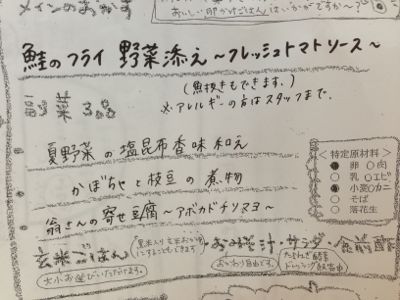 メインのおかず
おいしい卵かけごはんはいかがですか〜?
鮭のフライ 野菜添え 〜フレッシュトマトソース〜
(魚抜きもできます。)
※アレルギーの方はスタッフまで。
菜 3
夏野菜の塩昆布香味和え
かぼちゃと枝豆の煮物
翁さんの寄せ豆腐〜アボカドチリマヨ〜
<特定原材料>
●卵 ○肉
○乳 ○エビ
●小麦○カニ
○そば
○落花生
玄米ごはん
大小お選びいただけます。
おみそ汁・サラダ・
おかわり自由です。